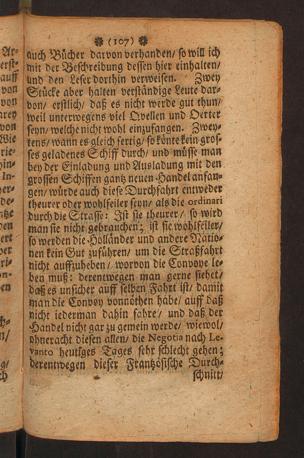 ❁ (107) ❁
auch Bücher darvon verhanden/ so will ich
mit der Beschreibung dessen hier einhalten/
und den Leser dorthin verweisen. Zwey
Stücke aber halten verständige Leute dar-
von/ erstlich/ daß es nicht werde gut thun/
weil unterwegens viel Qvellen und Oerter
seyn/ welche nicht wohl einzufangen. Zwey-
tens/ wann es gleich fertig/ so könte kein gros-
ses geladenes Schiff durch/ und müsse man
bey der Einladung und Ausladung mit den
grossen Schiffen gantz neuen Handel anfan-
gen/ würde auch diese Durchfahrt entweder
theurer oder wohlfeiler seyn/ als die ordinari
durch die Strasse: Ist sie theurer/ so wird
man sie nicht gebrauchen; ist sie wohlfeiler/
so werden die Holländer und andere Natio-
nen kein Gut zuführen/ um die Straßfahrt
nicht auffzuheben/ worvon die Convoye le-
ben muß: derentwegen man gerne siehet/
daß es unsicher auff selben Fahrt ist/ damit
man die Convoy vonnöthen habe/ auff daß
nicht iederman dahin fahre/ und daß der
Handel nicht gar zu gemein werde/ wiewol/
ohneracht diesen allen/ die Negotia nach Le-
vanto heutiges Tages sehr schlecht gehen;
derentwegen dieser Frantzösische Durch-
schnitt/